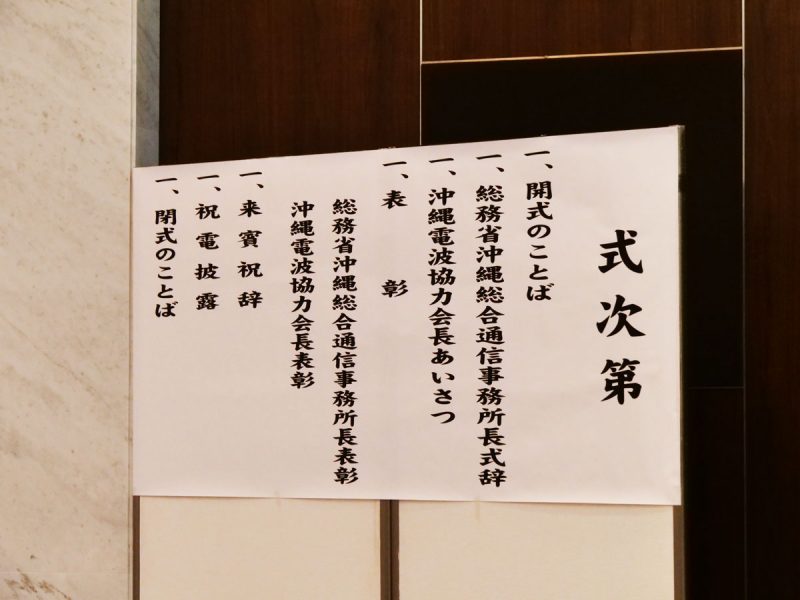 式次第
一、開式のことば
一、総務省沖縄総合通信事務所長式辞
一、沖縄電波協力会長あいさつ
一、表彰
総務省沖縄総合通信事務所長表彰
沖縄電波協力会長表彰
一、来賓祝辞
一、祝電披露
一、閉式のことば